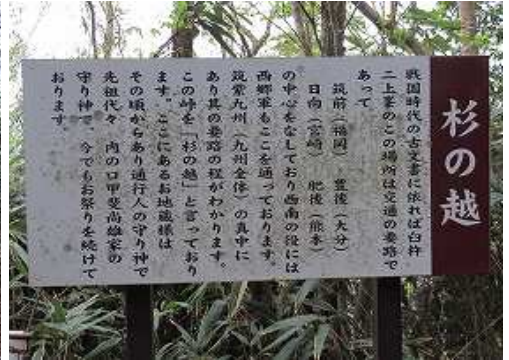 杉の越
戦国時代の古文書に依れば臼杵
二上峯のこの場所は交通の要路で
あって
筑前（福岡）　豊後（大分）
日向（宮崎）　肥後（熊本）
の中心をなしており西南の役には
西郷軍もここを通っております。
筑紫九州（九州全体）の真中に
あり其の要路の程がわかります。
この峠を「杉の越」と言っており
ます。ここにあるお地蔵様は
その頃からあり通行人の守り神で
先祖代々　内の口甲斐尚雄家の
守り神で、今でもお祭りを続けて
おります。